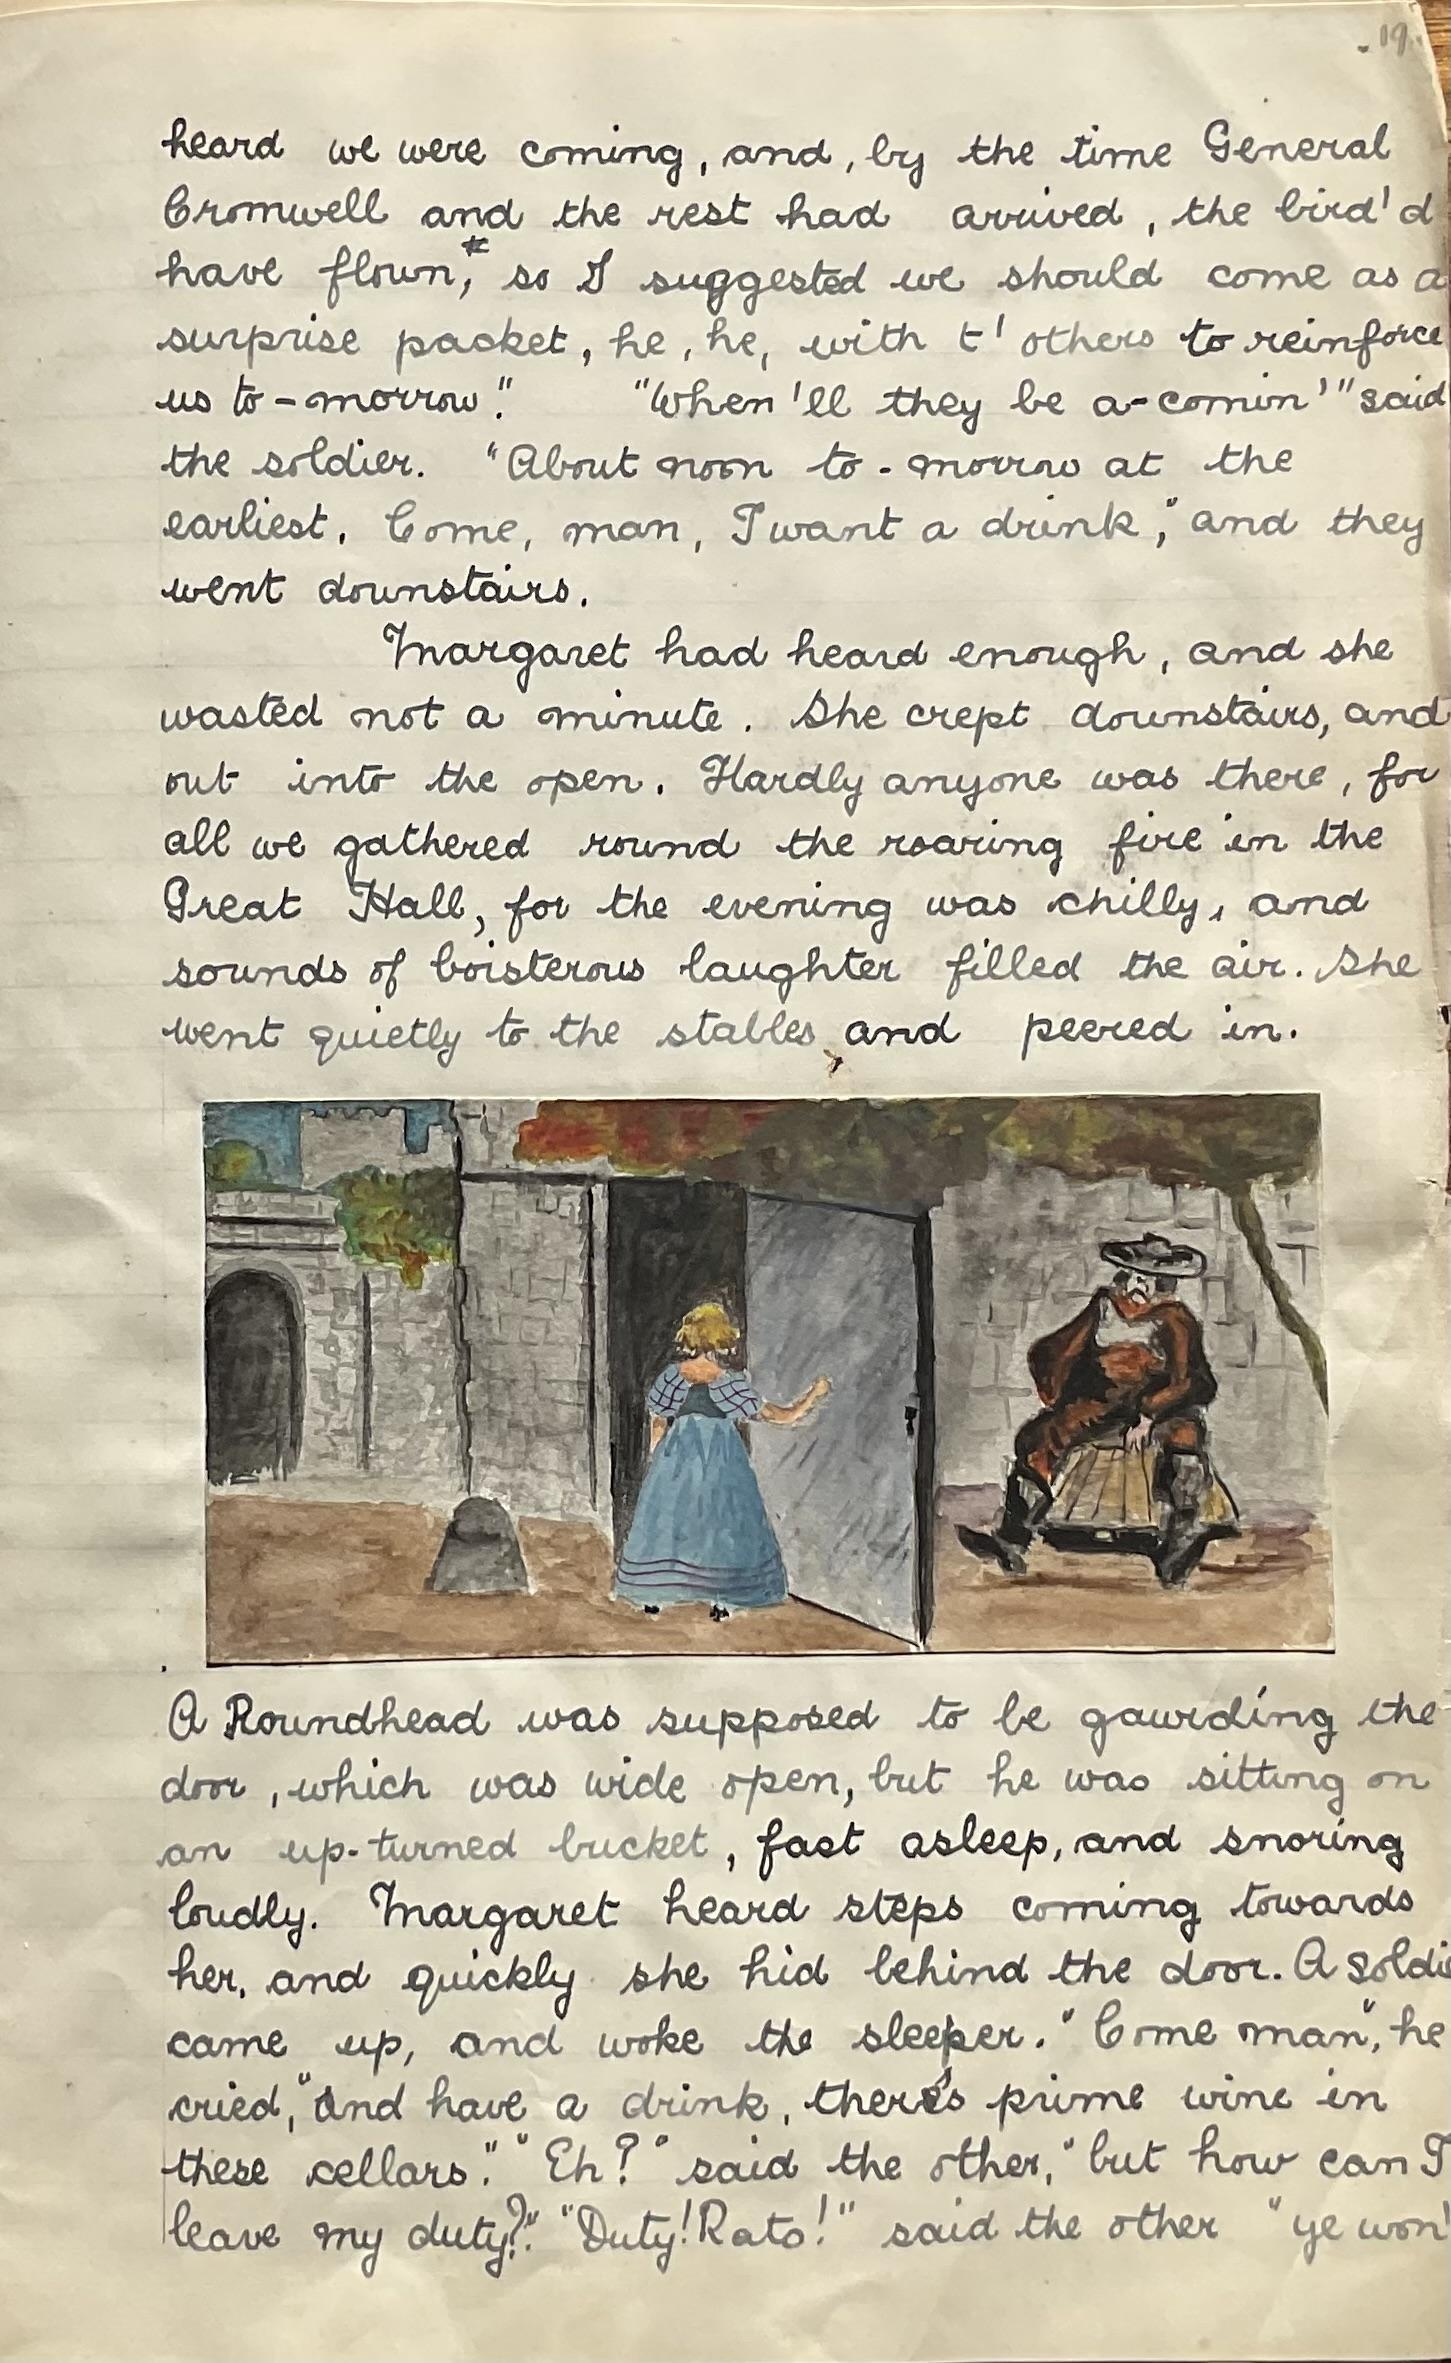 . 19.
heard we were coming, and, by the time General
Cromwell and the rest had arrived, the bird'd
have flown,* so I suggested we should come as a
surprise packet, he, he, with t' others to reinforce
us to-morrow." "When'll they be a-comin'" said
the soldier. "About noon to-morrow at the
earliest. Come, man, I want a drink," and they
went downstairs.
Margaret had heard enough, and she
wasted not a minute. She crept downstairs, and
out into the open. Hardly anyone was there, for
all we gathered round the roaring fire in the
Great Hall, for the evening was chilly, and
sounds of boisterous laughter filled the air. She
went quietly to the stables and peered in.
A Roundhead was supposed to be gaurding the
door, which was wide open, but he was sitting on
an up-turned bucket, fast asleep, and snoring
loudly. Margaret heard steps coming towards
her, and quickly she hid behind the door. A soldi
came up, and woke the sleeper. "Come man", he
cried, "and have a drink, there's prime wine in
these cellars." "Eh?" said the other, "but how can I
leave my duty?" "Duty! Rats!" said the other "ye won'